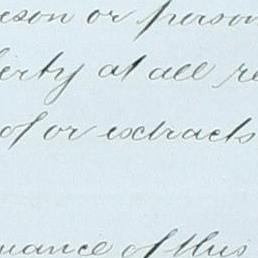 eson or person
erty at all re
of or extracts
uance of this